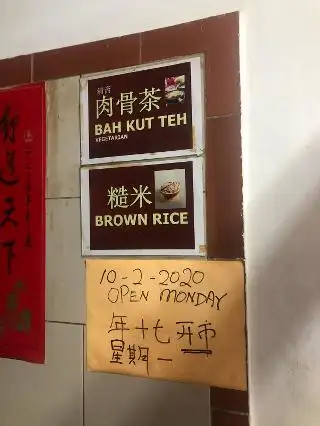 純齋
肉骨茶
BAH KUT TEH
VEGETARIAN
糙米
BROWN RICE
10-2-2020
OPEN MONDAY
年十七开市
星期一
天下